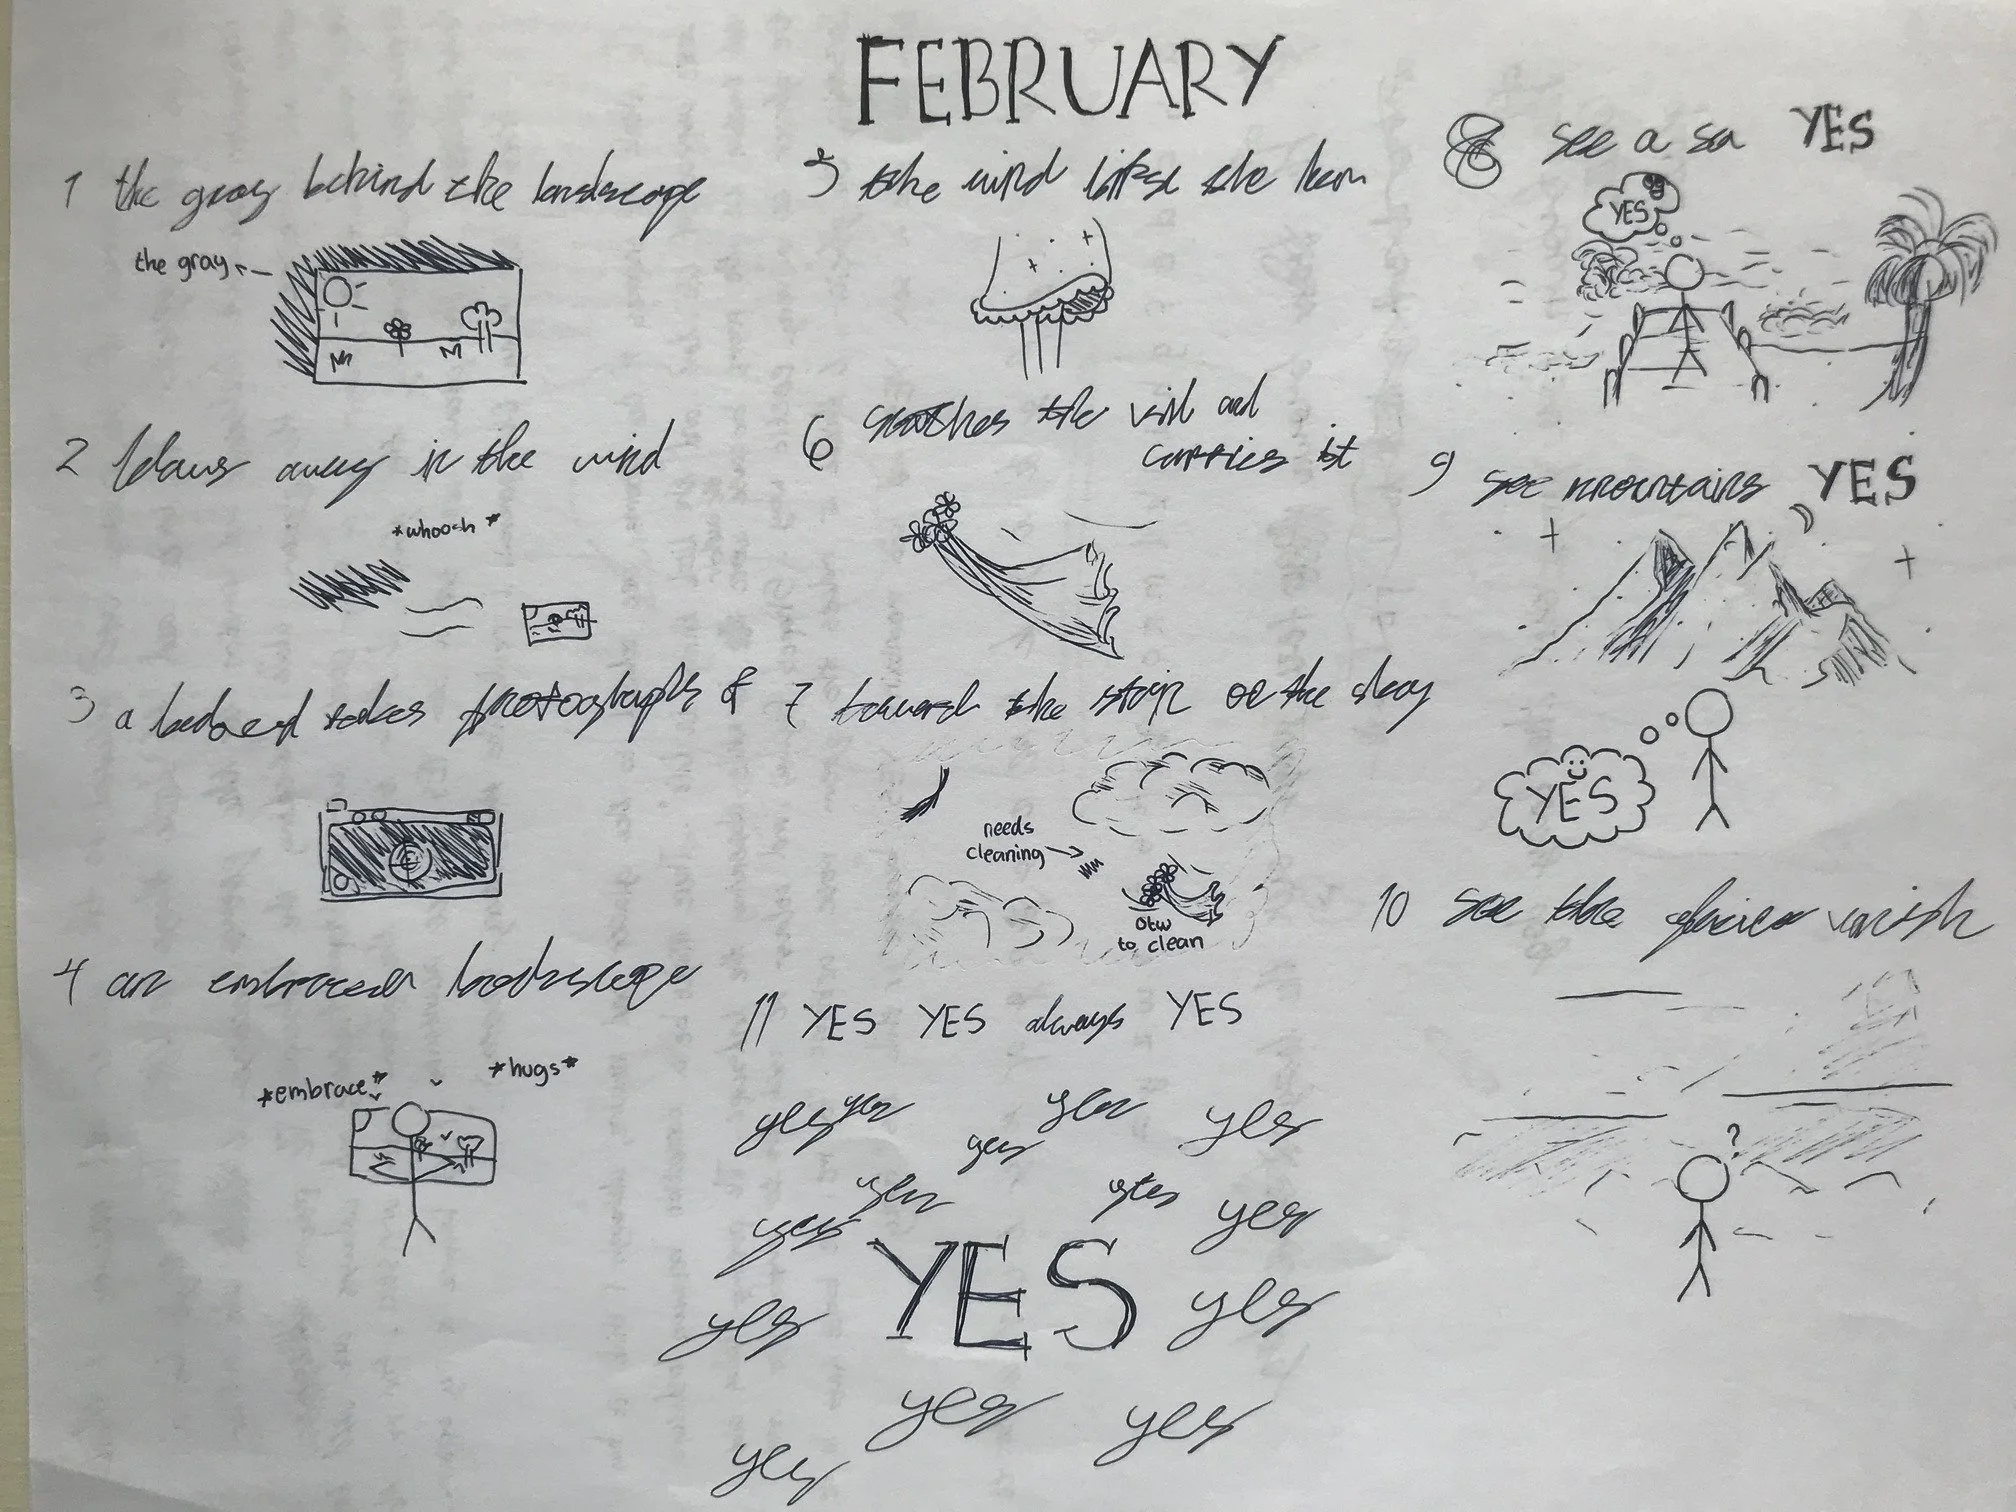 FEBRUARY
1 the gray behind the landscape
the gray
2 blows away in the wind
*whoosh*
3 a beloved takes photographs of
4 an embraced landscape
*embrace*
*hugs*
5 the wind lifts the hem
6 snatches the veil and
carries it
7 toward the strip of the sky
needs
cleaning
otw
to clean
8 see a sea YES
YES
9 see mountains YES
YES
10 see the glacier vanish
?
11 YES YES always YES
yes yes yes yes
yes
yes yes yes
yes
YES
yes yes
yes yes
yes